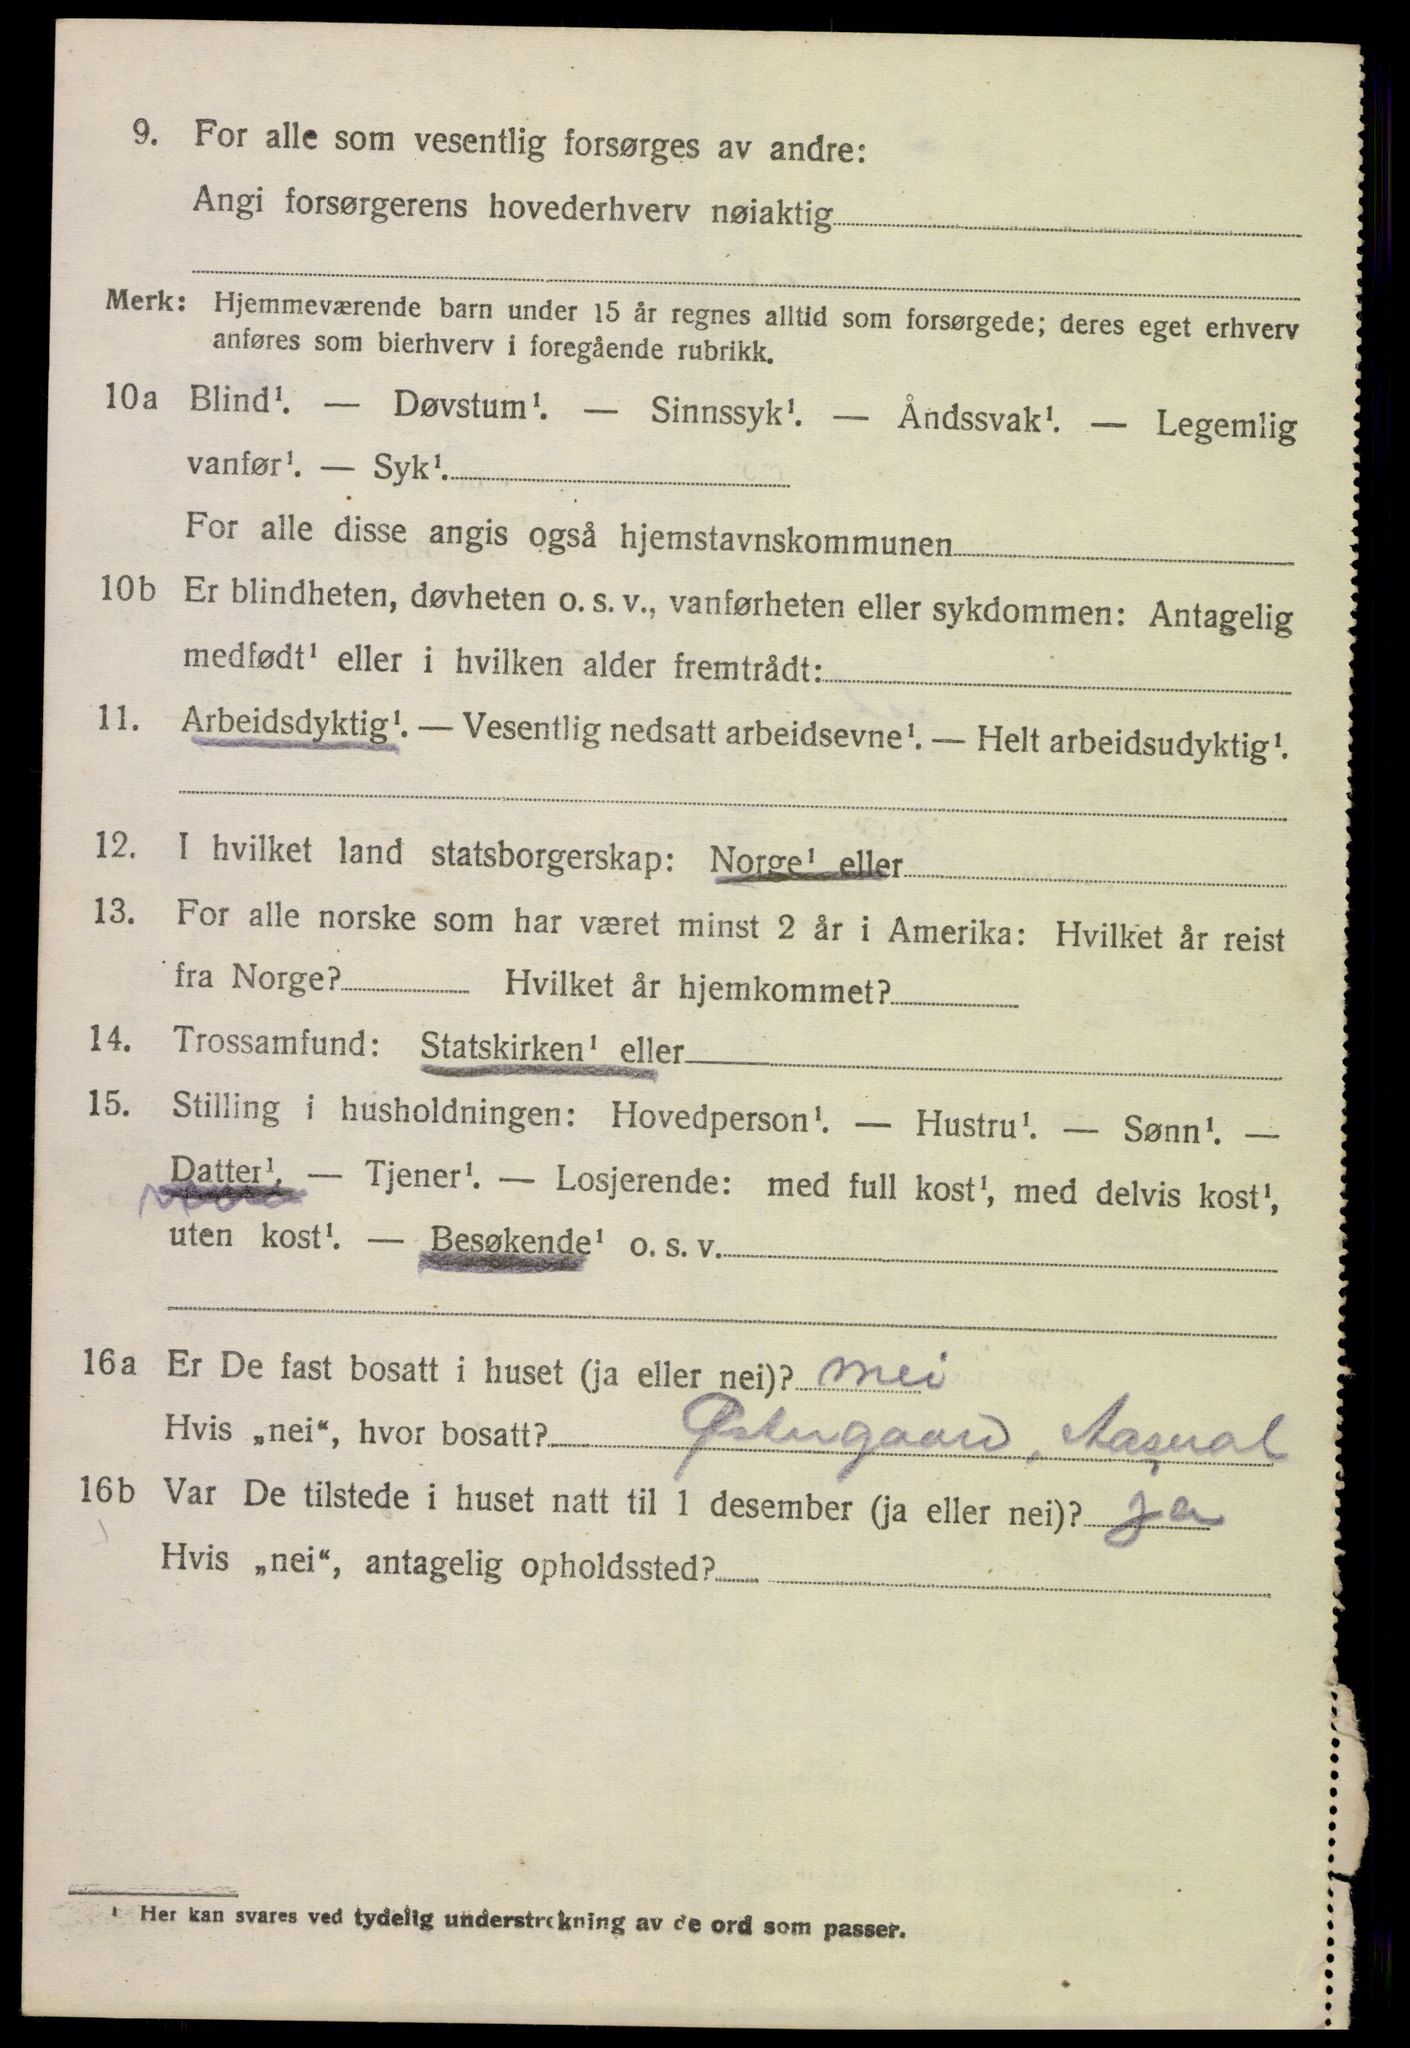 9. For alle som vesentlig forsørges av andre:
Angi forsørgerens hovederhverv nøiaktig
Merk: Hjemmeværende barn under 15 år regnes alltid som forsørgede; deres eget erhverv
anføres som bierhverv i foregående rubrikk.
10a Blind¹. — Døvstum¹. — Sinnssyk¹. — Åndssvak¹. — Legemlig
vanfør¹. — Syk¹.
For alle disse angis også hjemstavnskommunen
10b Er blindheten, døvheten o. s. v., vanførheten eller sykdommen: Antagelig
medfødt¹ eller i hvilken alder fremtrådt:
11. Arbeidsdyktig¹. — Vesentlig nedsatt arbeidsevne¹. — Helt arbeidsudyktig¹.
12. I hvilket land statsborgerskap: Norge¹ eller
13. For alle norske som har været minst 2 år i Amerika: Hvilket år reist
fra Norge? Hvilket år hjemkommet?
14. Trossamfund: Statskirken¹ eller
15. Stilling i husholdningen: Hovedperson¹. — Hustru¹. — Sønn¹. —
Datter¹. — Tjener¹. — Losjerende: med full kost¹, med delvis kost¹,
uten kost¹. — Besøkende¹ o. s. v.
16a Er De fast bosatt i huset (ja eller nei)? nei
Hvis „nei“, hvor bosatt? Østengaard,
16b Var De tilstede i huset natt til 1 desember (ja eller nei)? ja
Hvis „nei“, antagelig opholdssted?
¹ Her kan svares ved tydelig understrekning av de ord som passer.